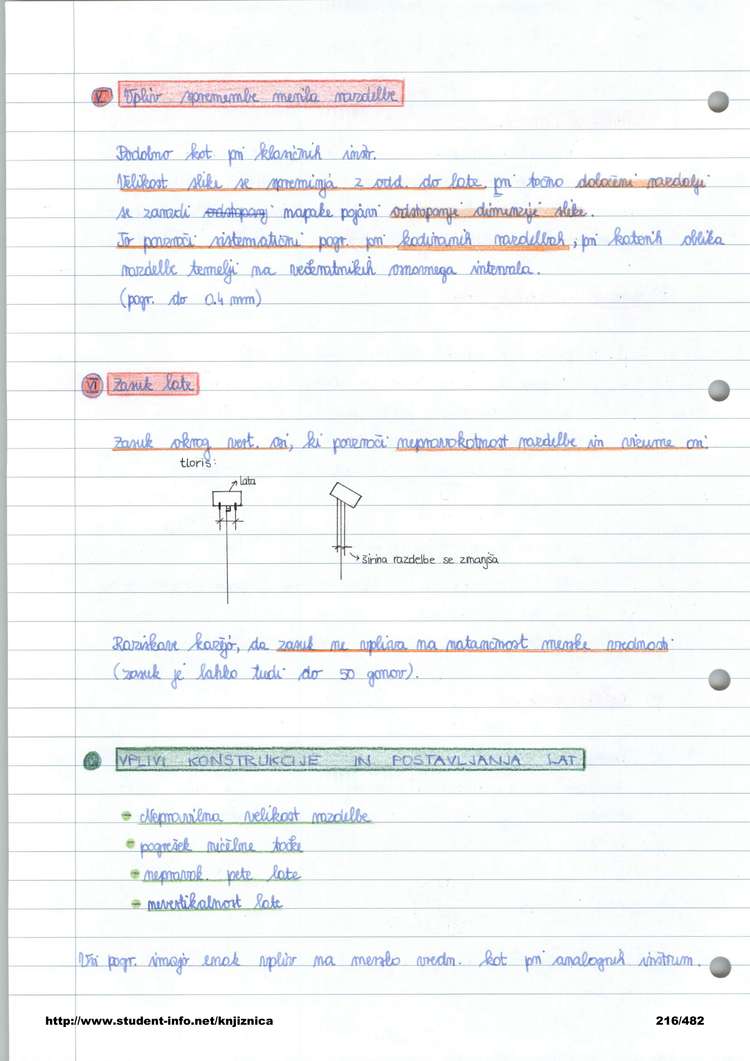 V. Vpliv spremembe merila razdelbe
Podobno kot pri klasičnih instr.
Velikost slike se spreminja z odd. do late, pri točno določeni razdalji
se zaradi odstopanj napake pojavi odstopanje dimenzije slike.
To povzroči sistematični pogr. pri kodiranih razdelbah, pri katerih oblika
razdelbe temelji na večkratnikih osnovnega intervala.
(pogr. do 0.4 mm)
VI Zasuk late
Zasuk okrog vert. osi, ki povzroči nepravokotnost razdelbe in vizurne osi
tloris:
lata
širina razdelbe se zmanjša
Raziskave kažejo, da zasuk ne vpliva na natančnost merske vrednosti
(zasuk je lahko tudi do 50 gonov).
VPLIVI KONSTRUKCIJE IN POSTAVLJANJA LAT
- Nepravilna velikost razdelbe
- pogrešek ničelne točke
- nepravok. pete late
- nevertikalnost late
Vsi pogr. imajo enak vpliv na mersko vredn. kot pri analognih instrum.
http://www.student-info.net/knjiznica 216/482